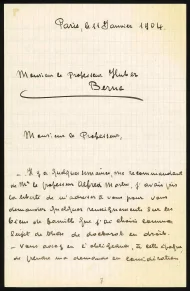 Paris, le 11 Janvier 1904.
Monsieur le Professeur Huber
Berne
Monsieur le Professeur,
- Il y a quelques semaines, me recommandant
de Mr le professeur Alfred Martin, j'avais pris
la liberté de m'adresser à vous pour vous
demander quelques renseignements sur les
biens de famille que j'ai choisi comme
sujet de thèse de doctorat en droit.
- Vous avez eu l'obligeance, à cette époque
de prendre ma demande en considération